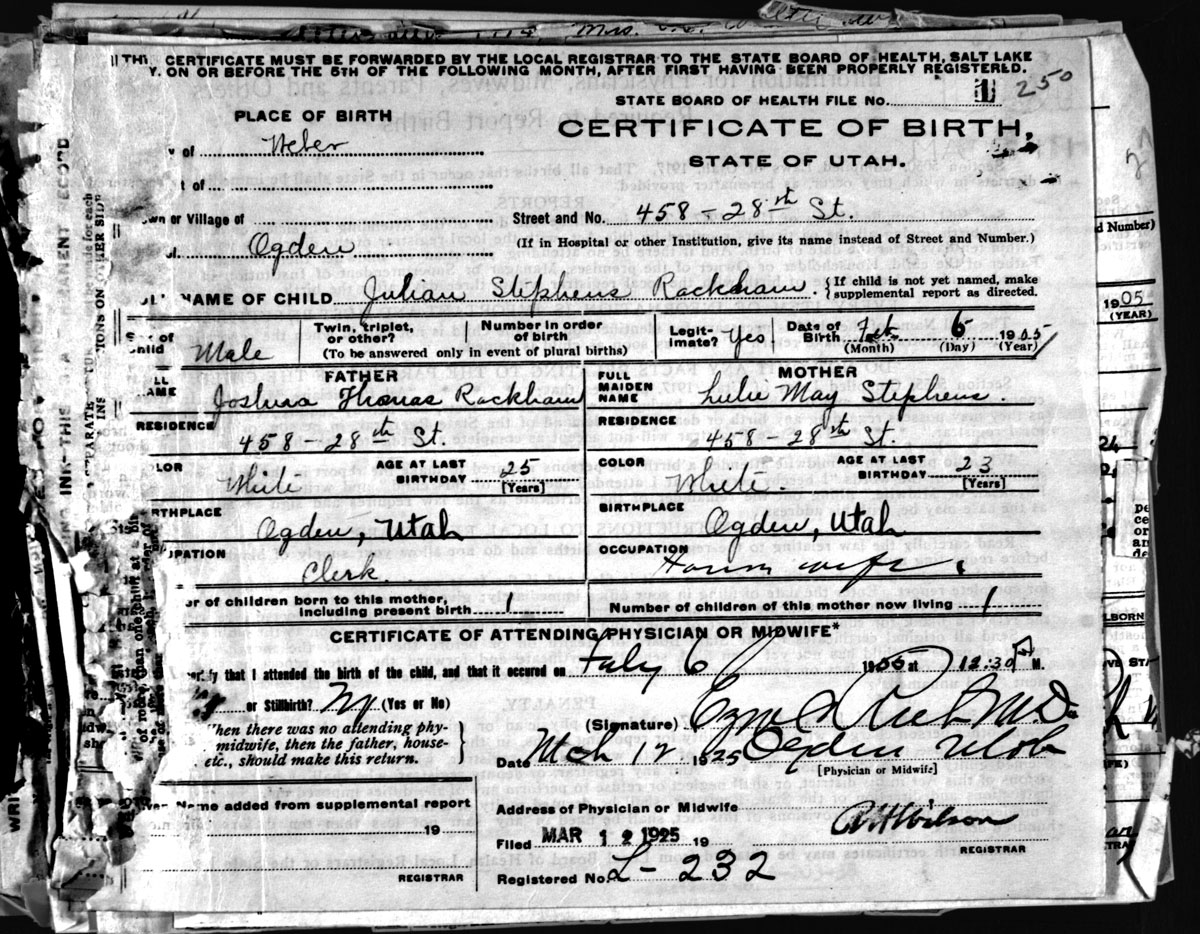 THI. CERTIFICATE MUST BE FORWARDED BY THE LOCAL REGISTRAR TO THE STATE BOARD OF HEALTH, SALT LAKE
Y. ON OR BEFORE THE 5TH OF THE FOLLOWING MONTH, AFTER FIRST HAVING BEEN PROPERLY REGISTERED.
250
STATE BOARD OF HEALTH FILE No. 1
PLACE OF BIRTH
CERTIFICATE OF BIRTH,
STATE OF UTAH.
y of Weber
t of
wn or Village of
Street and No. 458 - 28th St.
of Ogden
(If in Hospital or other Institution, give its name instead of Street and Number.)
NAME OF CHILD Julian Stephens Rackham. {If child is not yet named, make supplemental report as directed.
Sex of Child Male
Twin, triplet, or other?
Number in order of birth
(To be answered only in event of plural births)
Legitimate? Yes
Date of Birth Feb 6 1905
(Month) (Day) (Year)
FATHER
LL NAME Joshua Thomas Rackham
MOTHER
FULL MAIDEN NAME Lulie May Stephens.
RESIDENCE 458 - 28th St.
RESIDENCE 458 - 28th St.
OLOR White
AGE AT LAST BIRTHDAY 25
[Years]
COLOR White.
AGE AT LAST BIRTHDAY 23
[Years]
RTHPLACE Ogden, Utah
BIRTHPLACE Ogden, Utah
UPATION Clerk.
OCCUPATION House wife.
er of children born to this mother, including present birth 1
Number of children of this mother now living 1
CERTIFICATE OF ATTENDING PHYSICIAN OR MIDWIFE*
rtify that I attended the birth of the child, and that it occured on Feby 6 1905 at 12:30 M.
or Stillbirth? No (Yes or No)
(Signature) M.D.
hen there was no attending phy-
midwife, then the father, house-
etc., should make this return.
Date Mch 12 1925 Ogden Utah
[Physician or Midwife]
Name added from supplemental report
19
REGISTRAR
Address of Physician or Midwife
Filed MAR 12 1925 19
Wilson
REGISTRAR
Registered No. L-232
d Number)
1905
(YEAR)